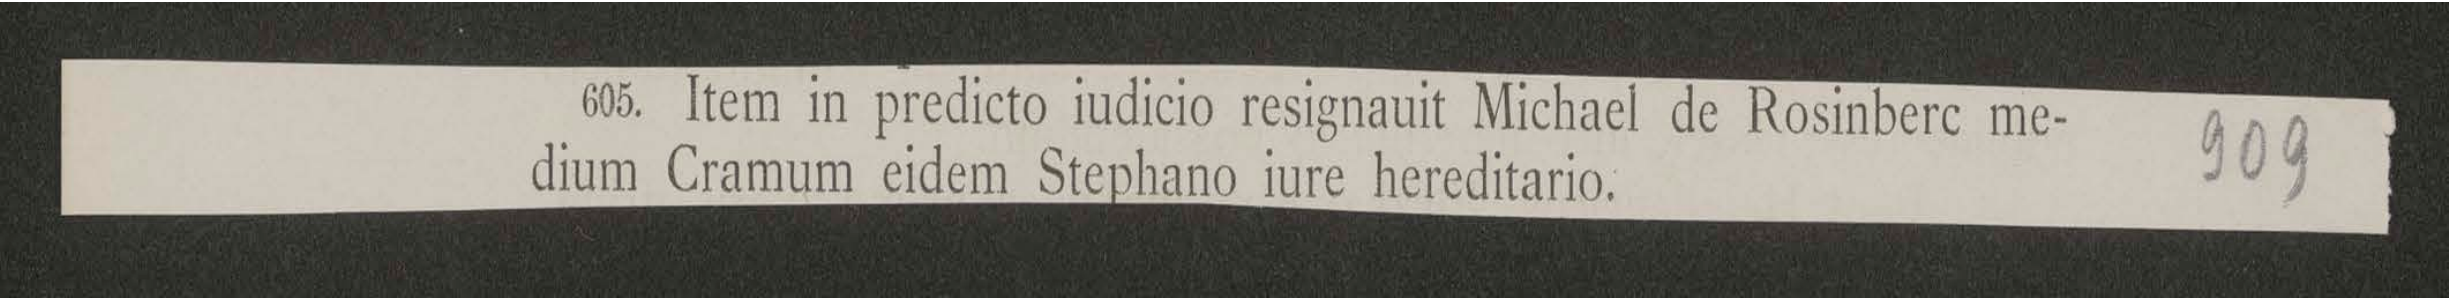 605. Item in predicto iudicio resignauit Michael de Rosinberc me-
dium Cramum eidem Stephano iure hereditario.
909